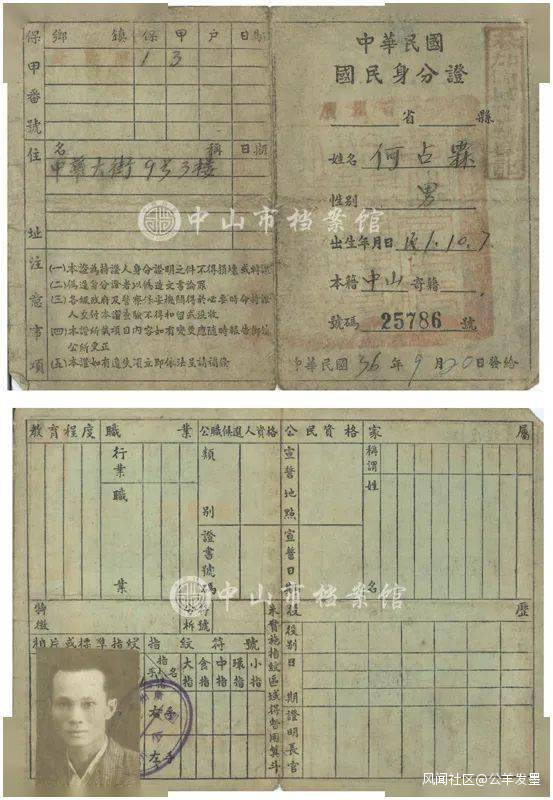 保甲番號
鄉 鎮 保 甲 戶 日期
1 3
住址
名 稱 日期
中華大街9号3樓
注意事項
(一)本證為持證人身分證明之件不得損壞或轉讓
(二)偽造身分證者以偽造文書論罪
(三)各級政府及警察保安機關得於必要時命持證
人交付本證查驗不得扣留或沒收
(四)本證所載項目內容如有變更應隨時報告鄉鎮
公所更正
(五)本證如有遺失須立即依法呈請補發
中山市档案馆
中華民國
國民身分證
省 縣
姓名 何占霖
性別 男
出生年月日 民1.10.7
本籍 中山 寄籍
號碼 25786 號
中華民國36年9月20日發給
教育程度 職業 公職候選人資格 公民資格 家屬
行業
職業
類別
證書號碼
宣誓地點
宣誓日期
稱謂
姓名
中山市档案馆
特徵
分析
符號
相片或標準指紋
指紋符號
指名
手別
大指
食指
中指
環指
小指
右手
左手
未實施指紋區域得暫用箕斗
役歷
役別
日期
證明長官
风闻社区@公羊发墨